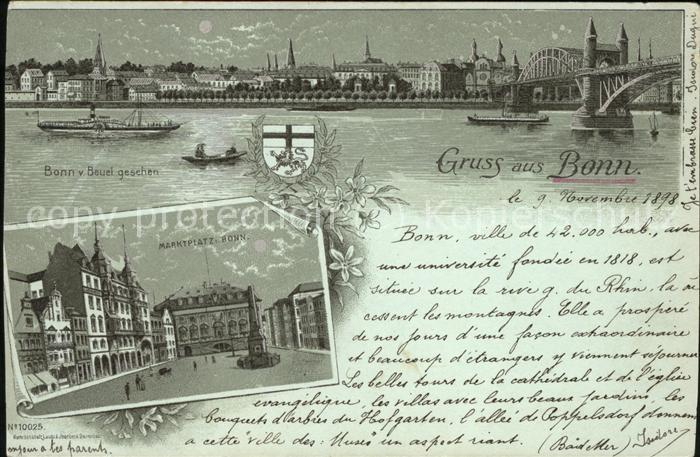 Bonn v. Beuel gesehen
Gruss aus Bonn.
le 9. Novembre 1898
MARKTPLATZ: BONN.
Bonn, ville de 42.000 hab., avec
une université fondée en 1818, est
située sur la rive g. du Rhin, là où
cessent les montagnes. Elle a prospéré
de nos jours d'une façon extraordinaire
et beaucoup d'étrangers y viennent séjourner
Les belles tours de la cathédrale et de l'église
evangélique, les villas avec leurs beaux jardins, les
bouquets d'arbres du Hofgarten, l'allée de Poppelsdorf donnent
a cette "ville des: Muses" un aspect riant. (Bädeker) Isidore
No 10025.
bonjour à tes parents.
Je t'embrasse bien Isidore Duqué
copy protection watermark Kopierschutz